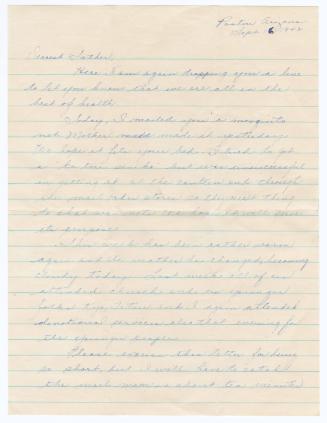 Poston, Arizona
Sept. 16, 1942
Dearest Father,
Here I am again dropping you a line
to let you know that we are all in the
best of health.
Today, I mailed you a mosquito
net Mother made it yesterday.
We hope it fits your bed. I tried to get
a but was unsuccessful
in getting it at the canteen and through
the mail order store so the next thing
to that was nets. We hope it will serve
its purpose.
This week has been rather warm
again and the weather has changed, becoming
cloudy today. Last week all of us
attended church and the younger
folks and I again attended
devotional services also that evening for
the younger people.
Please excuse this letter for being
so short, but I will have to catch
the mail man in about ten minutes